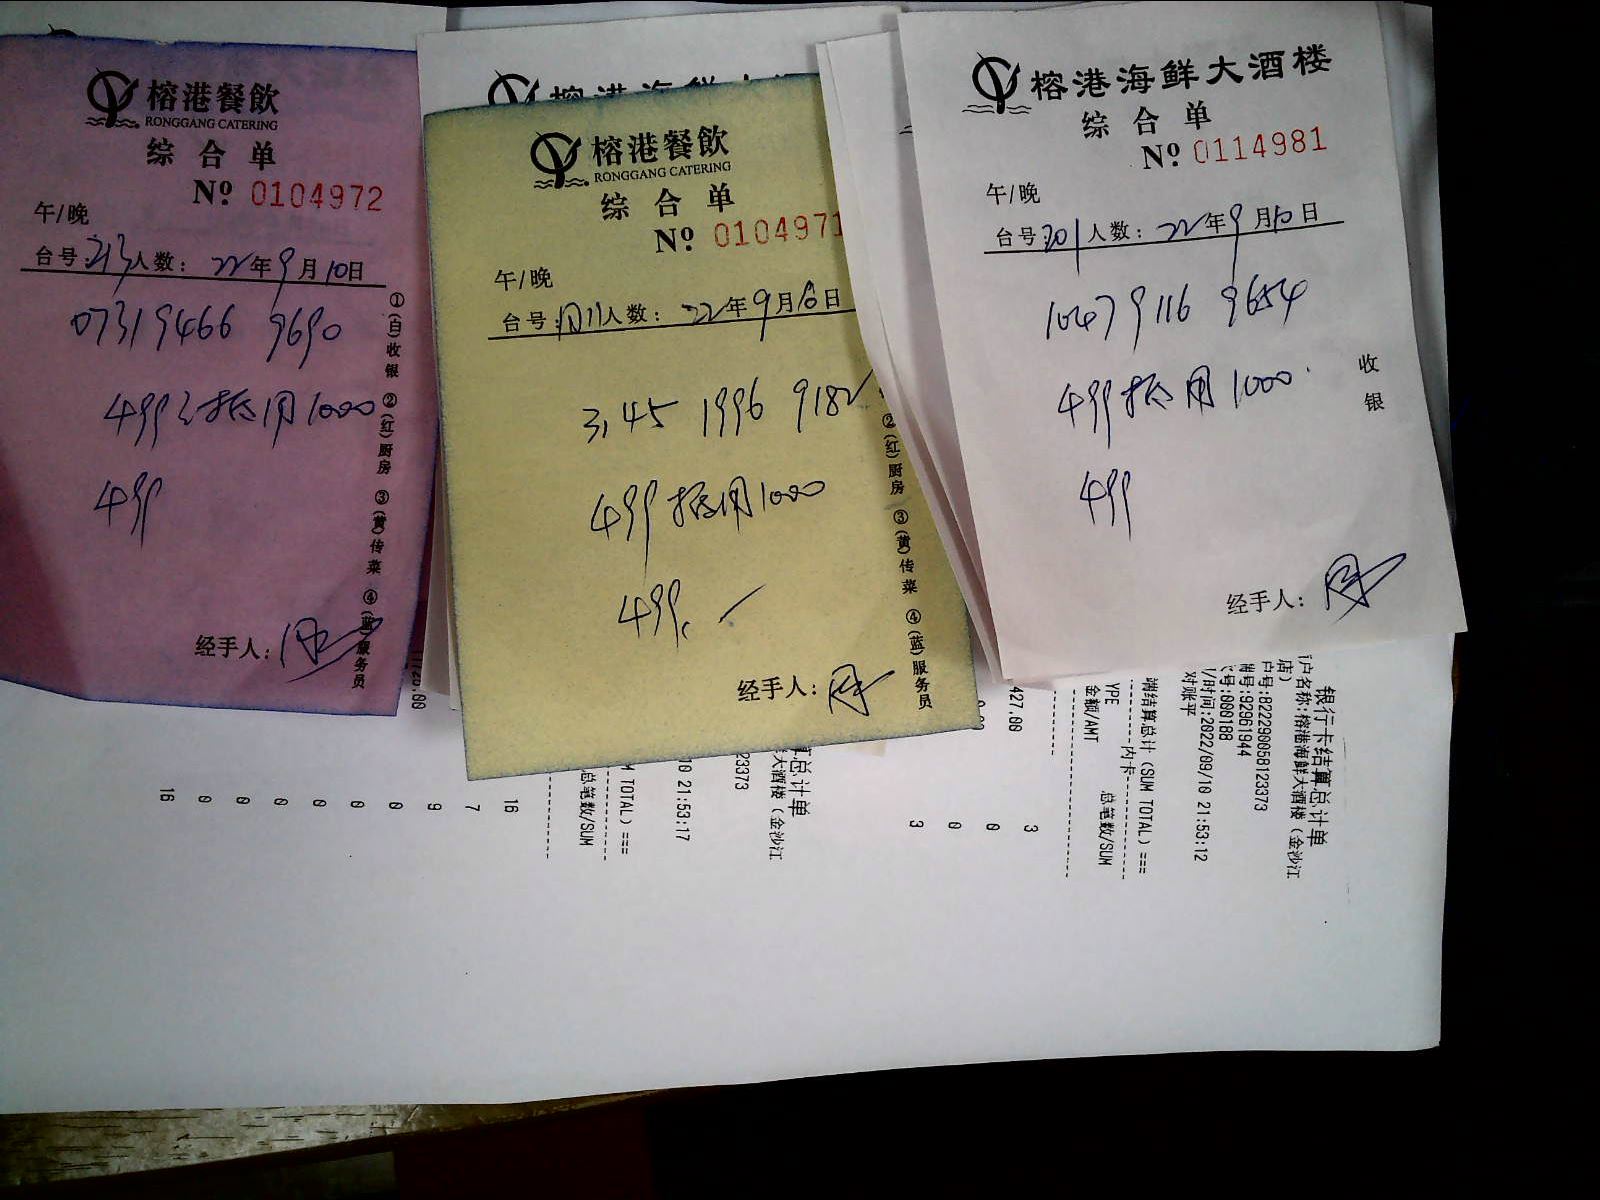 榕港餐飲
RONGGANG CATERING
综合单
№ 0104972
午/晚
台号:213人数: 22年9月10日
07319466 9690
499元抵用1000
499
经手人:
①(白)收银 ②(红)厨房 ③(黄)传菜 ④(蓝)服务员
榕港海鲜大酒
榕港餐飲
RONGGANG CATERING
综合单
№ 0104971
午/晚
台号: 人数: 22年9月10日
3,45 1996 9182
499抵用1000
499.
经手人:
②(红)厨房 ③(黄)传菜 ④(蓝)服务员
榕港海鲜大酒楼
综合单
№ 0114981
午/晚
台号:301人数: 22年9月10日
10479116 9654
499抵用1000
499
收银
经手人:
银行卡结算总计单
户名称:榕港海鲜大酒楼(金沙江
店)
户号:822290058123373
号:92961944
号:000188
/时间:2022/09/10 21:53:12
对账平
端结算总计(SUM TOTAL)===
内卡
YPE 总笔数/SUM
金额/AMT
3
427.00
0
0
3
算总计单
大酒楼(金沙江
23373
10 21:53:17
TOTAL)===
总笔数/SUM
16
7
9
0
0
0
0
0
0
16